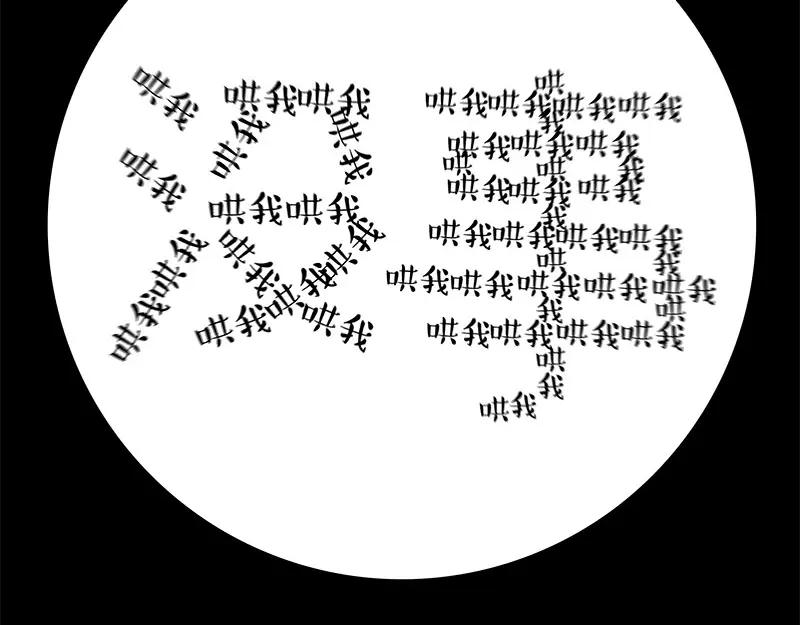 没事
哄我
哄我哄我
哄我哄我哄我哄我
哄我
哄我
哄我
哄我哄我哄我
哄我
哄我哄我哄我
哄我哄我
哄我哄我哄我哄我
哄我哄我
哄我
哄我哄我哄我
哄我哄我哄我哄我哄我
哄我
哄我
哄我哄我哄我哄我
哄我